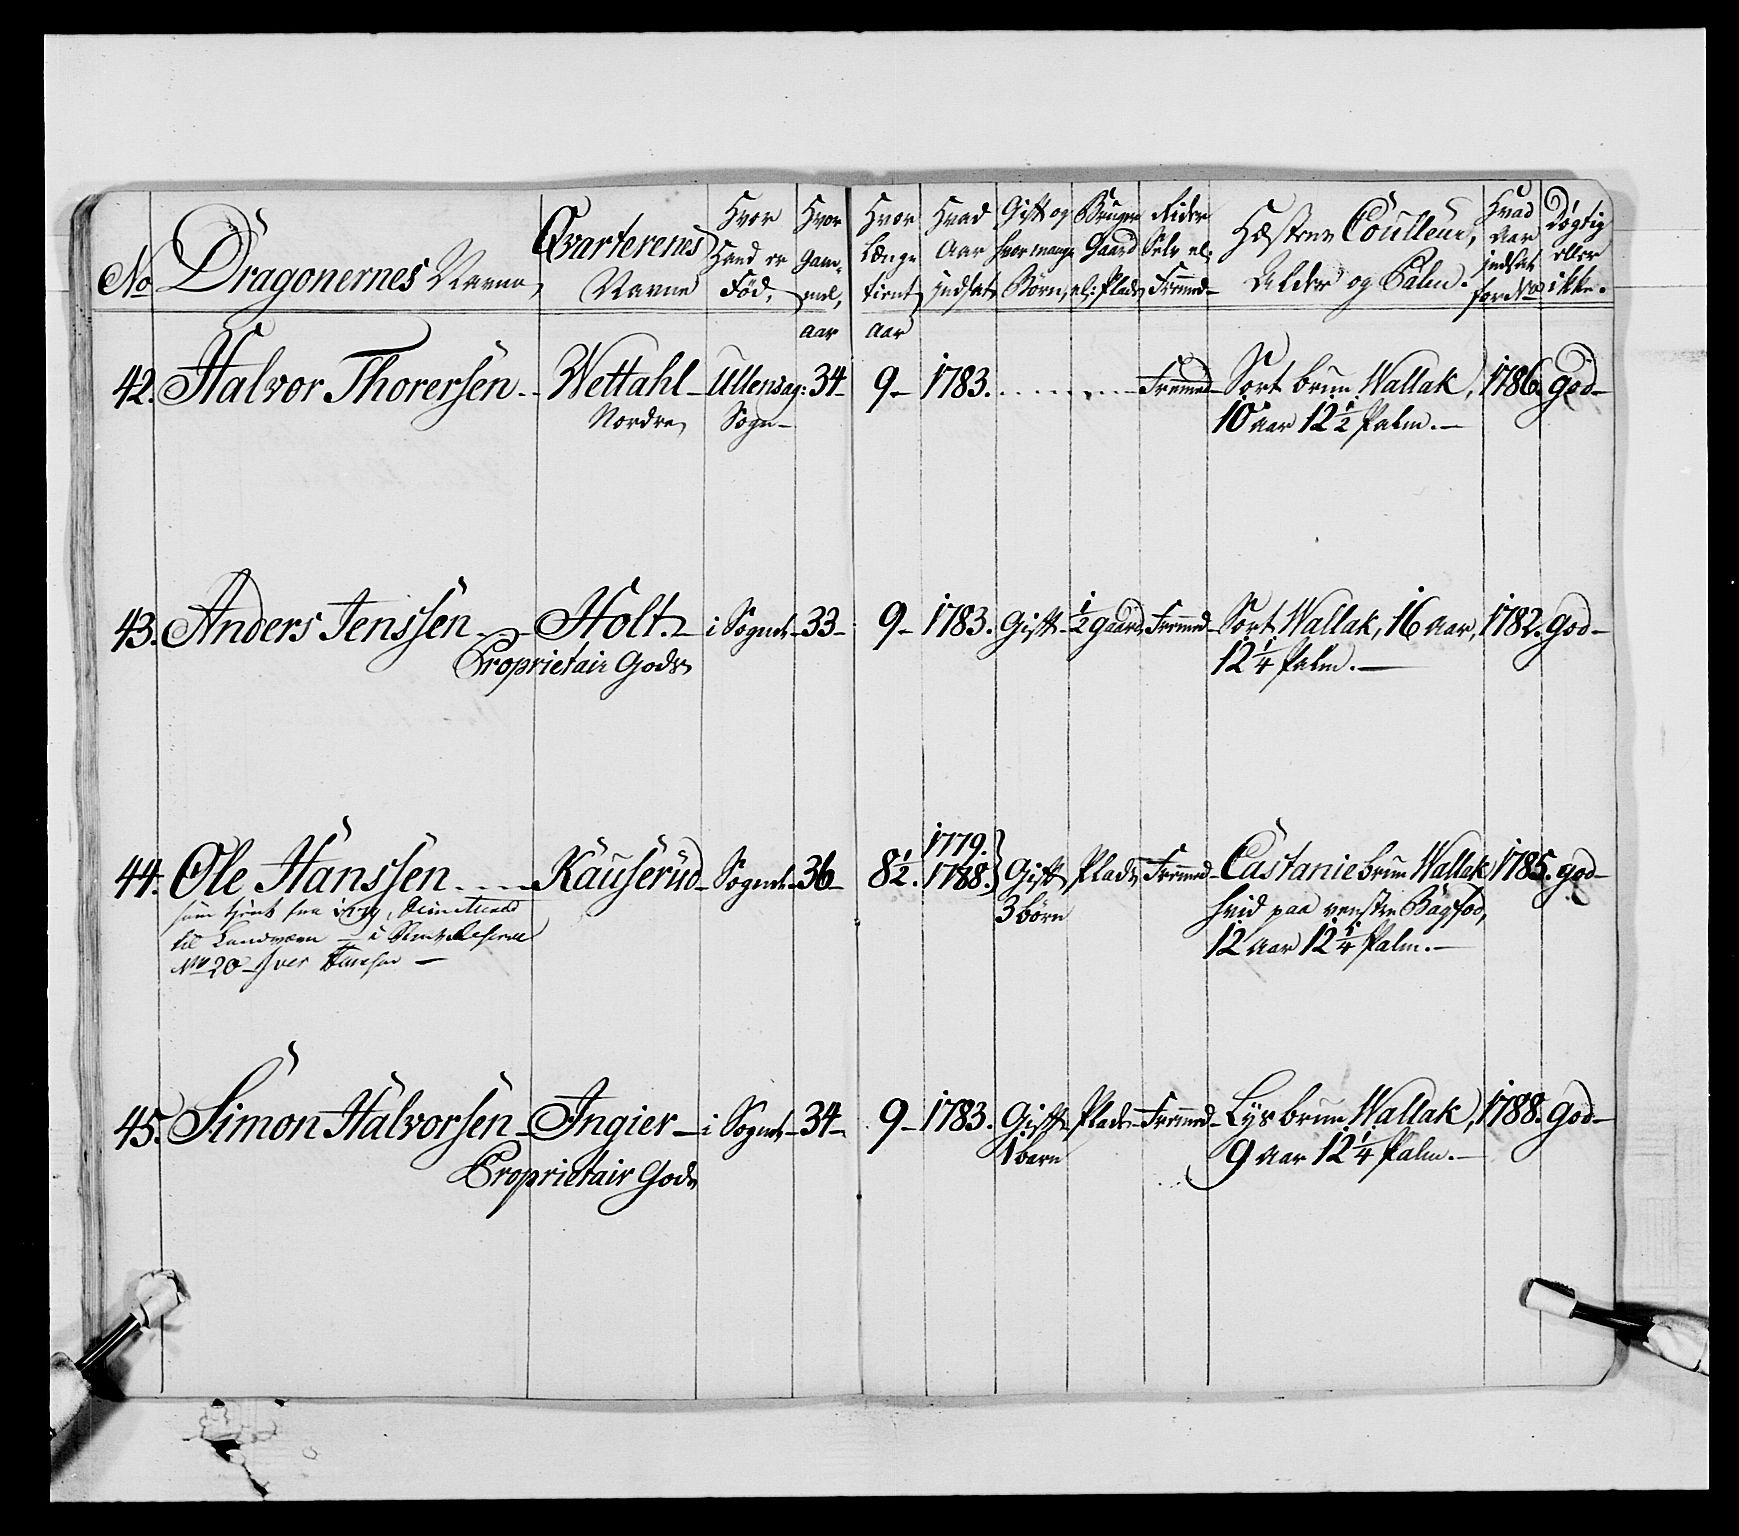 No
Dragonernes Navne,
Qvarterenes Navne
Hvor Hand er Föd,
Hvor Gammel, aar
Hvor Længe tient aar
Hvad Aar indsat
Gift og hvor mange Börn,
Bruger Gaard el: Plads
Rider Selv el: Fremmed
Hæstens Couleur, Alder og Palm.
Hvad Aar indsat for No
Dögtig eller ikke.
42. Halvor Thorersen - Wettahl - Ullensag: 34 - 9 - 1783. Fremmed - Sort brun Wallak, 1786. god -
Nordre, Sogn - 10 aar 12 1/2 Palm. -
43. Anders Jenssen - Holt. - i Sognet - 33 - 9 - 1783. Gift - 1/2 gaard, Fremmed - Sort Wallak, 16 Aar, 1782. god -
Proprietair Gods 12 1/4 Palm. -
1779.
44. Ole Hanssen - Kauserud - Sognet - 36 - 8 1/2. 1788. Gift Plads, Fremmed - Castanie brun Wallak, 1785. god -
3 börn hvid paa venstre Bagfod,
til Landværn -
12 Aar 12 1/4 Palm. -
No 20 Iver -
45. Simon Halvorsen - Ingier - i Sognet - 34 - 9 - 1783. Gift Plads - Fremmed - Lys brun Wallak, 1788. god -
1 barn 9 Aar 12 1/4 Palm. -
Proprietair Gods